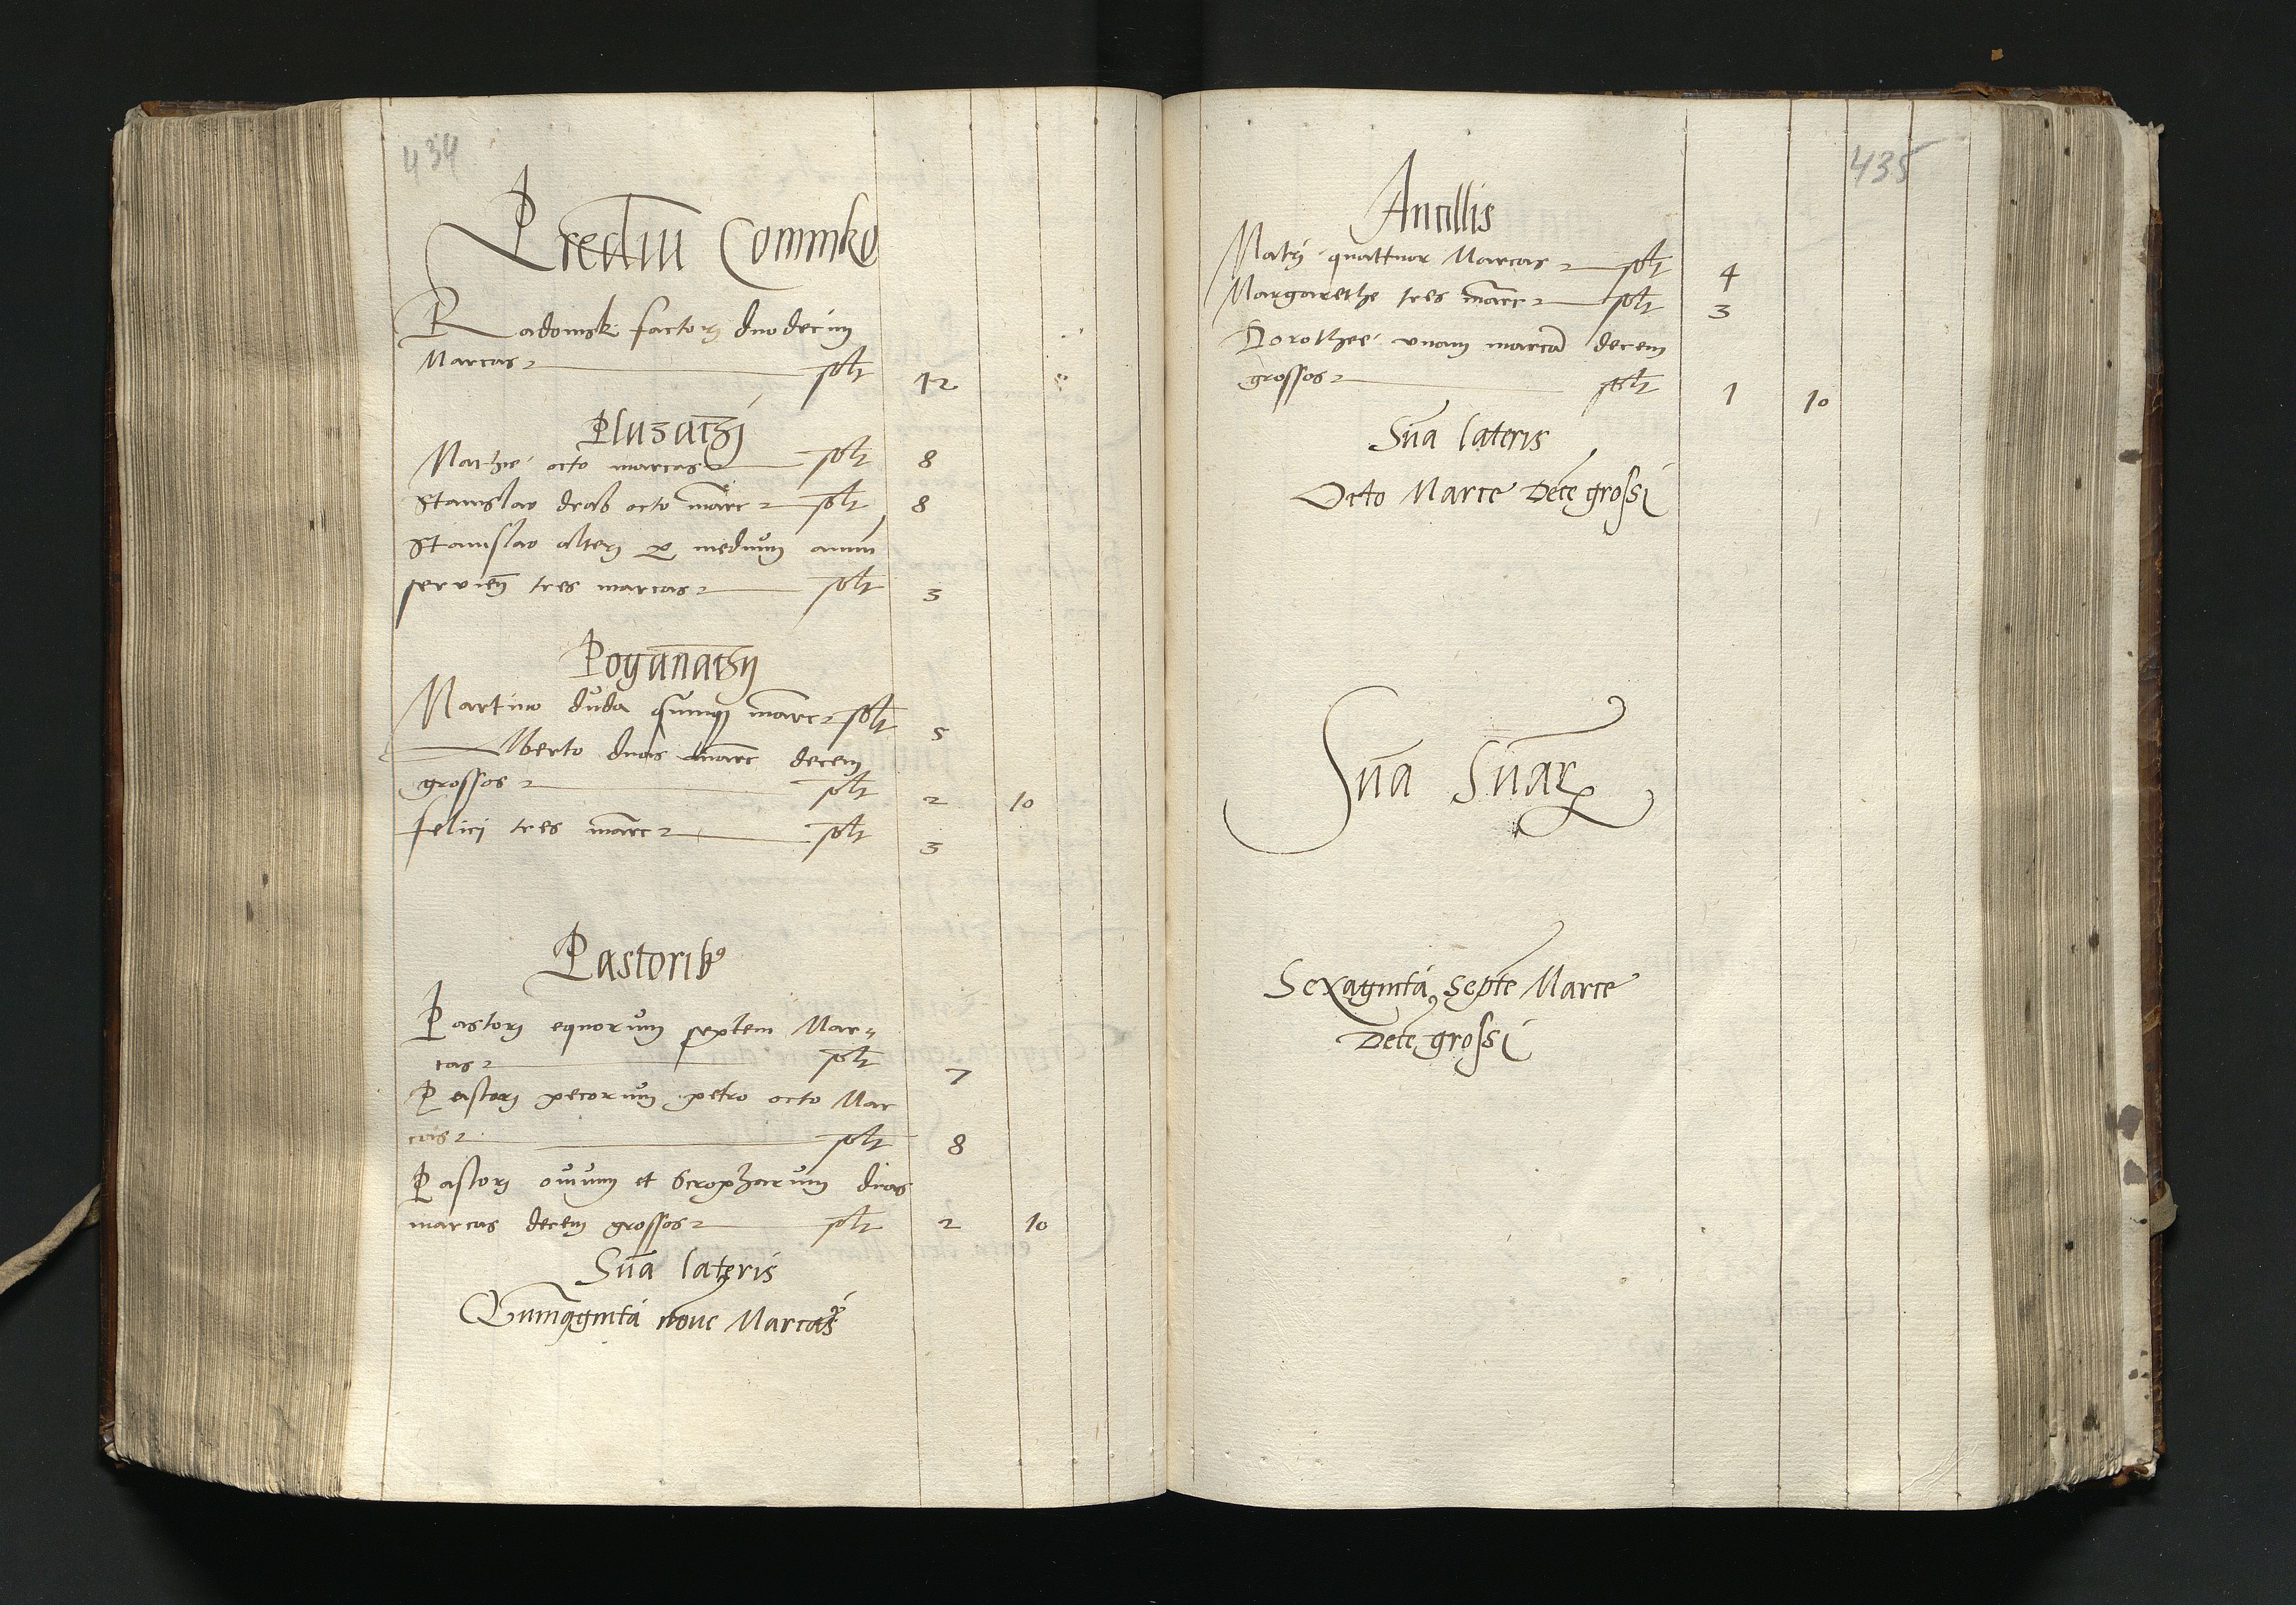 434
Prediu Commko
Radomsk factorj duodecim
Marcas solt 12
Pluzaczj
Mathie octo marcas solt 8
Stanislao drab octo marc solt 8
Stanislao alterj p medium annu
servien tres marcas solt 3
Poganaczy
Martino duda quinq marc solt 5
Alberto duas marc decem
grossos solt 2 10
felici tres marc solt 3
Pastorib9
Pastorj equorum septem Mar=
cas solt 7
Pastorj pecorum petro octo Mar
cas solt 8
Pastorj ouium et Scropharum duas
marcas decem grossos solt 2 10
Sūa lateris
Quinqaginta noue Marcas
435
Ancillis
Matrj quattuor Marcas solt 4
Margarethe tres marc solt 3
Dorothee vnam marcā decem
grossos solt 1 10
Sūa lateris
Octo Marce Dece grossi
Sūa Sūar
Sexaginta septe Marce
Dece grossi